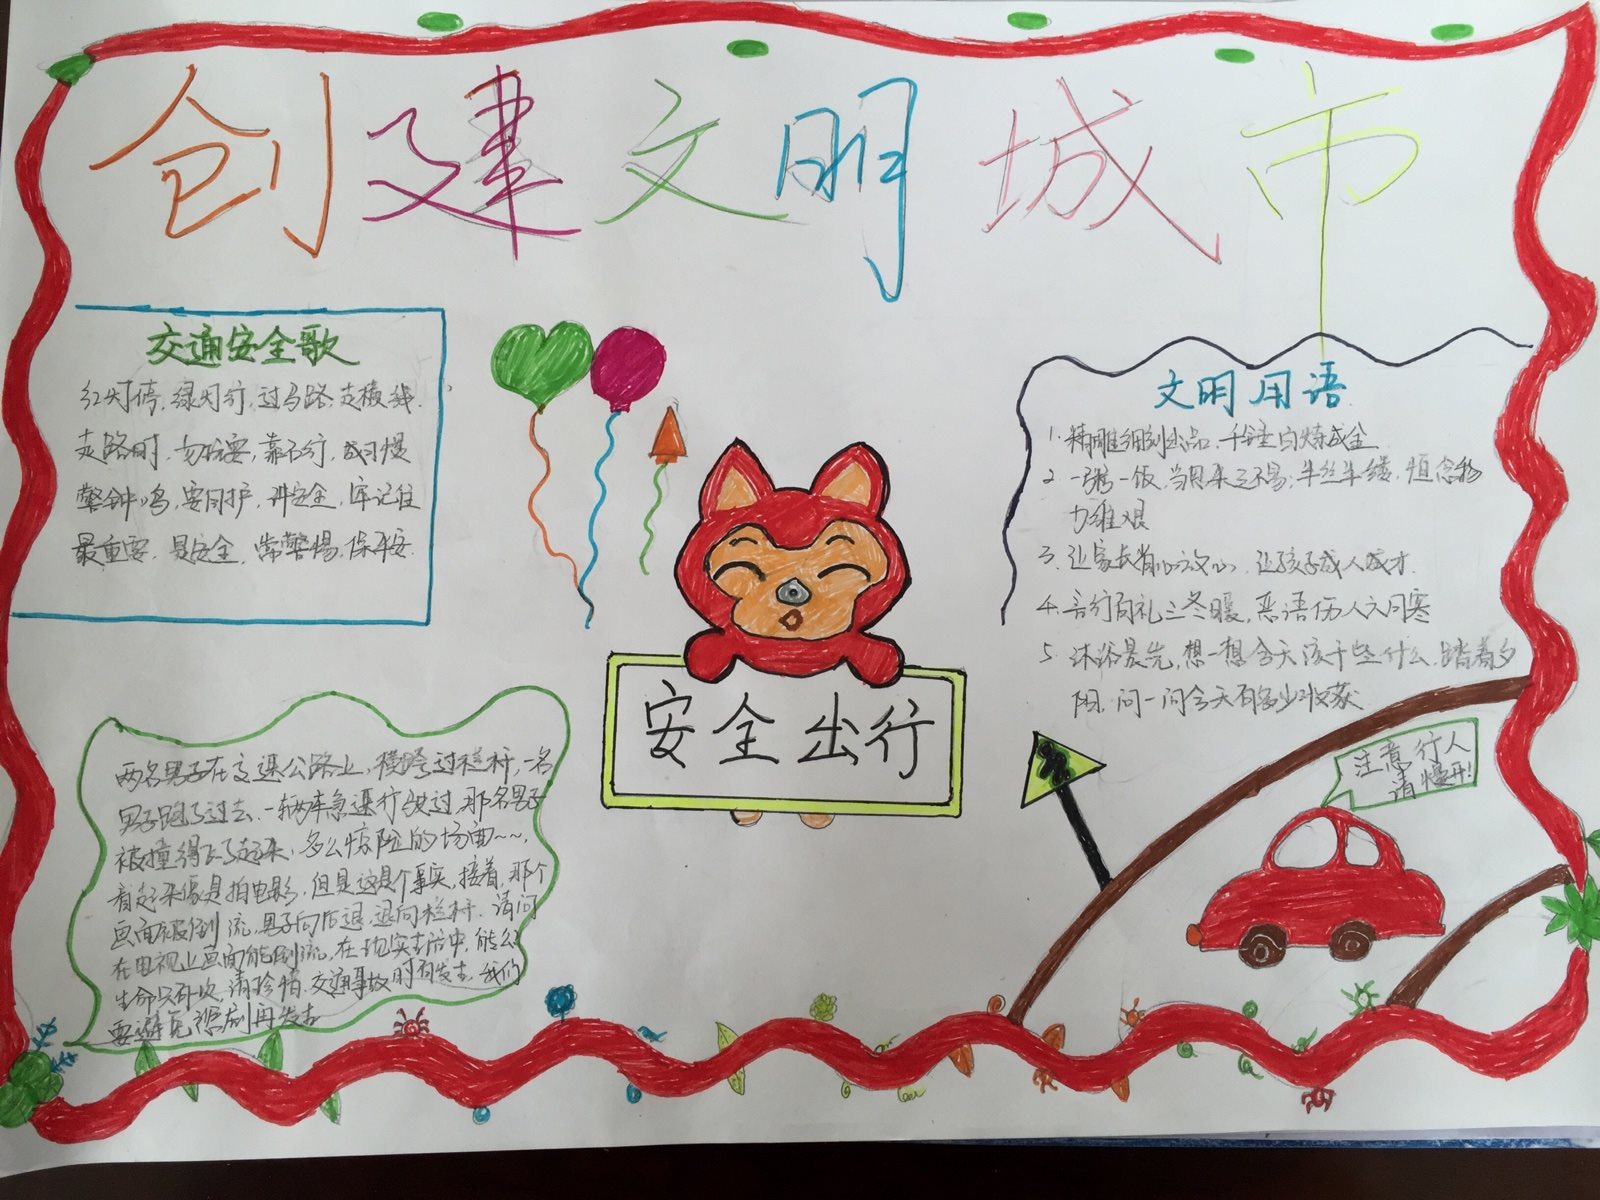 创建文明城市
交通安全歌
红灯停,绿灯行,过马路,走横线.
走路时,勿玩耍,靠右行,成习惯
警钟鸣,要同护,讲安全,牢记住
最重要,是安全,常警惕,保平安.
文明用语
1.精雕细刻出品,千锤百炼成金
2.一粥一饭,当思来之不易;半丝半缕,恒念物
力维艰
3.让家长省心放心,让孩子成人成才.
4.言行有礼三冬暖,恶语伤人六月寒
5.沐浴晨光,想一想今天该干些什么,踏着夕
阳,问一问今天有多少收获
安全出行
注意行人
请慢开!
两名男子在交通公路上,横跨过栏杆,一名
男子跑了过去,一辆车急速行驶过,那名男子
被撞得飞了起来,多么惊险的场面~~,
看起来像是拍电影,但是这是个事实,接着,那个
画面被倒流,男子向后退,退向栏杆.请问
在电视上画面能倒流,在现实生活中,能么
生命只有一次,请珍惜,交通事故时有发生,我们
要避免悲剧再发生